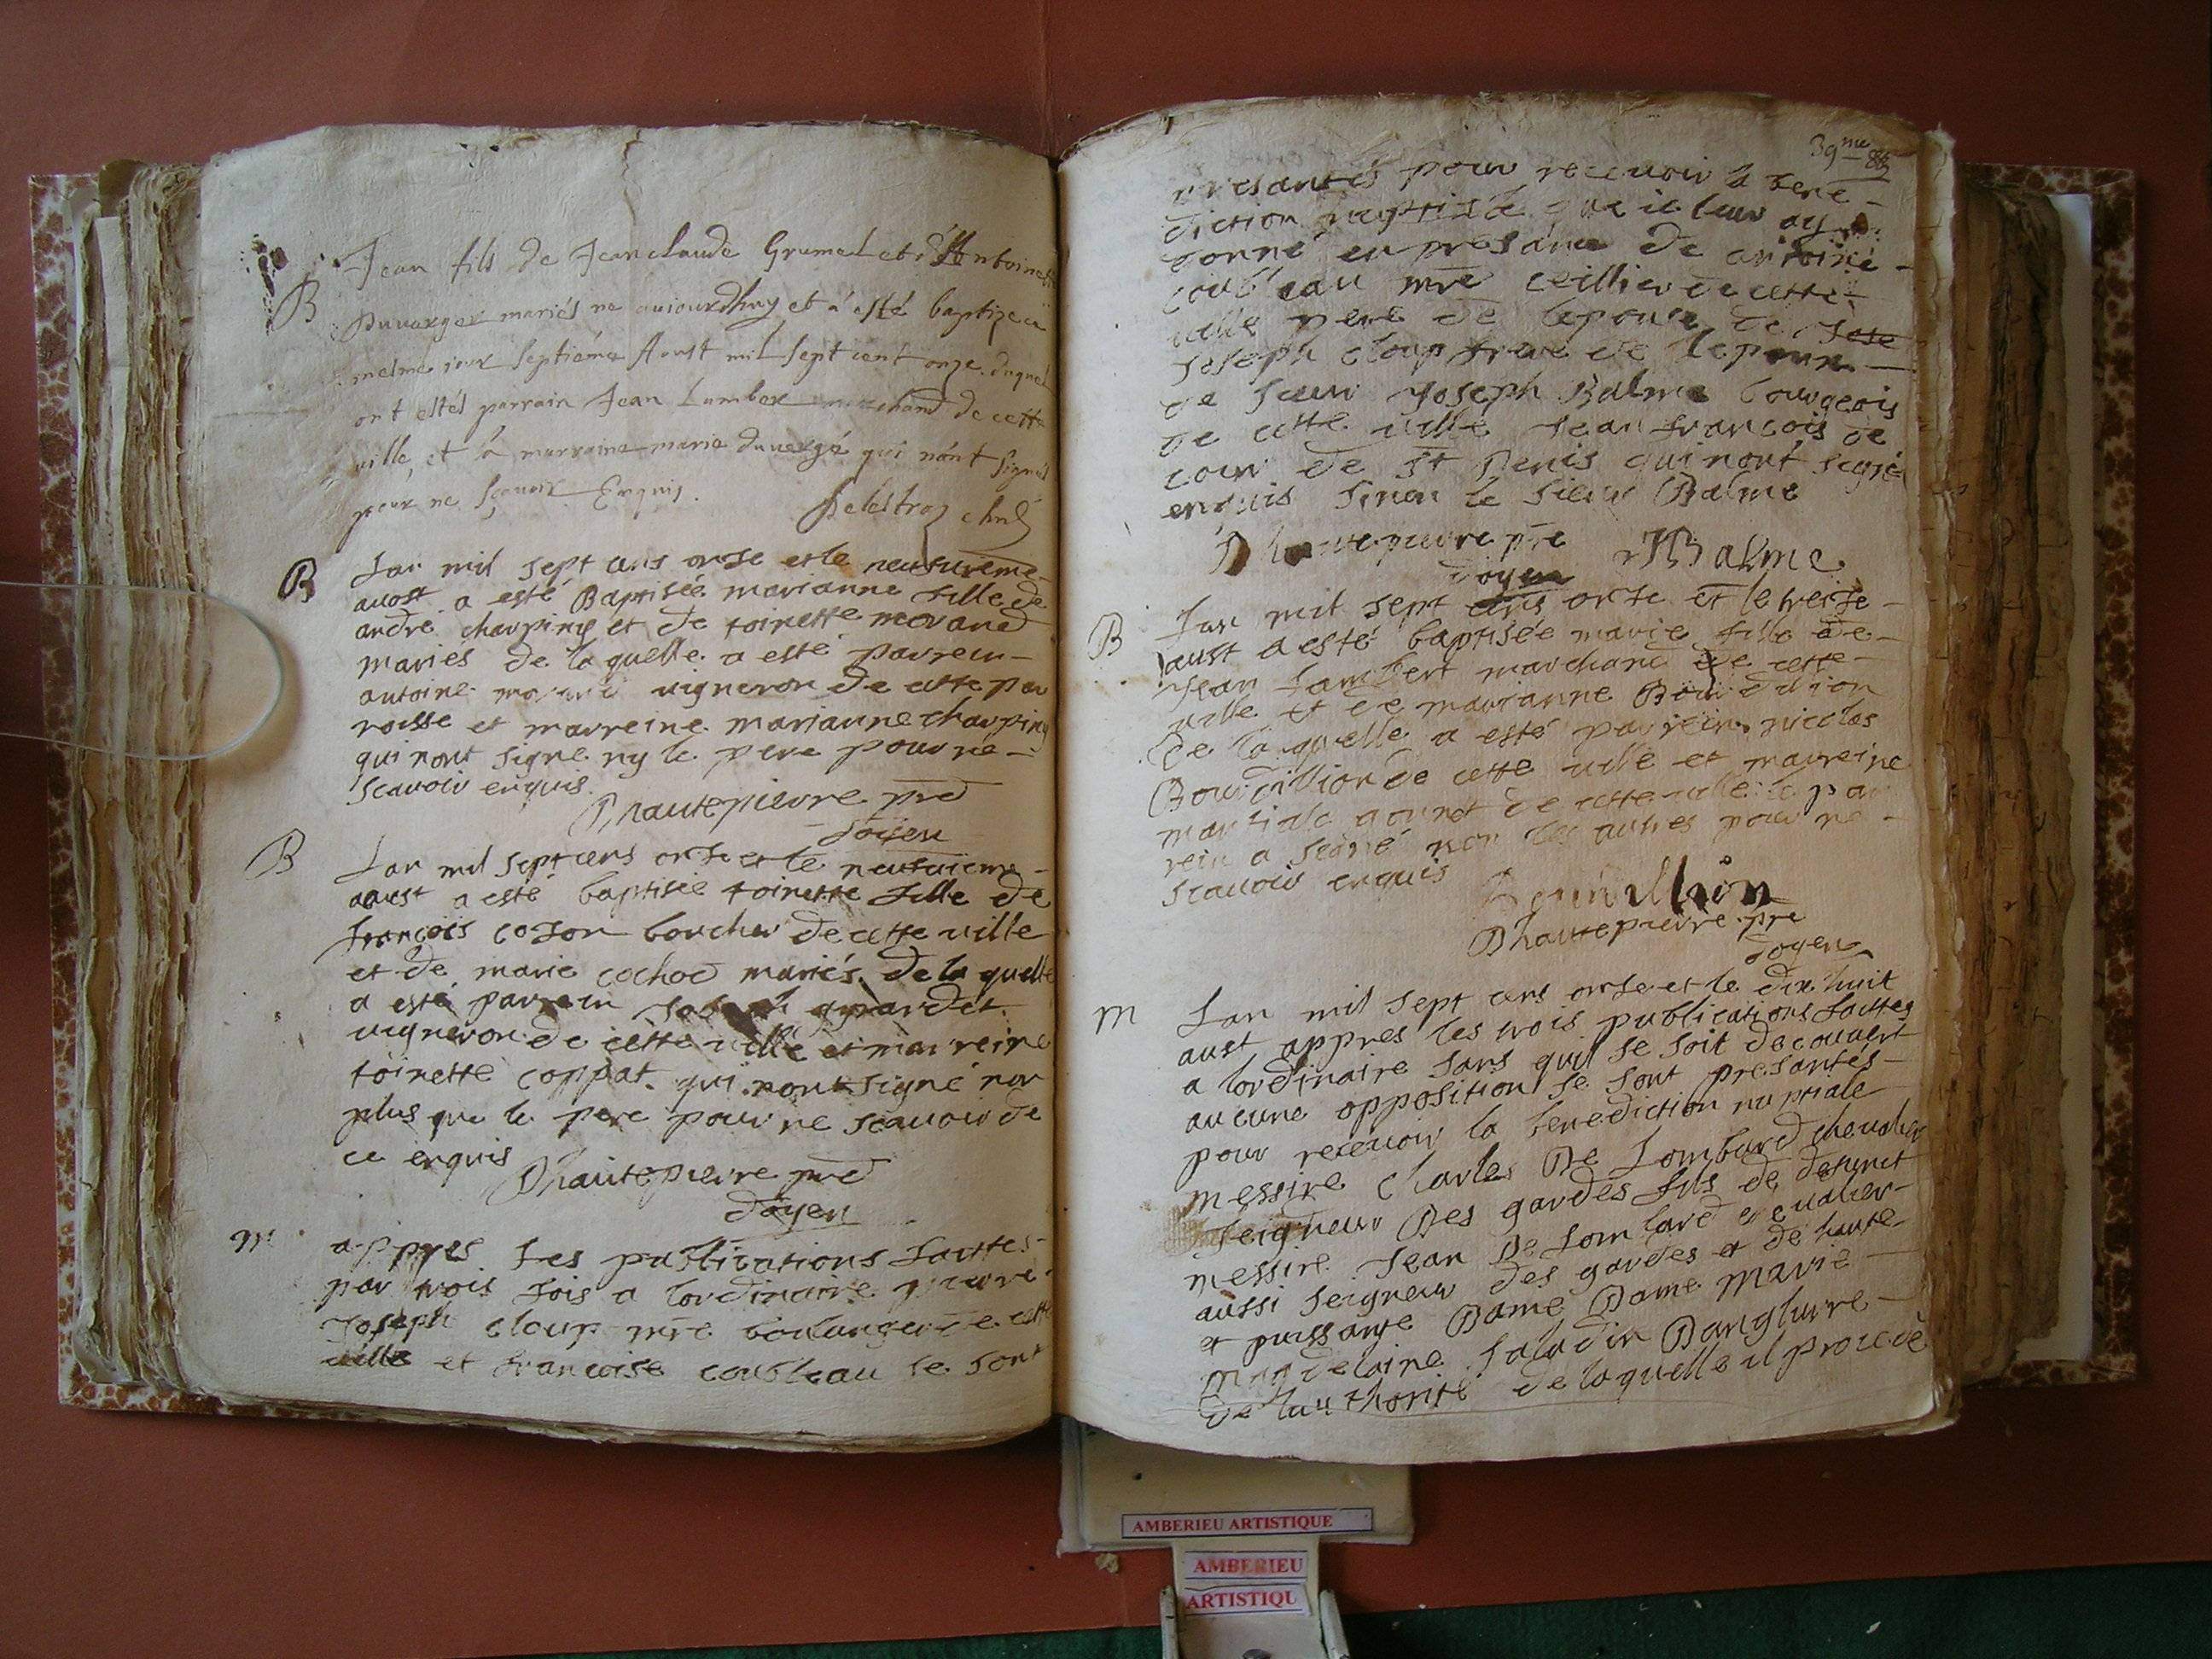 B
Jean fils de Jean claude Grumel et d'Antoinette
Duverger mariés ne aujourdhuy et à esté baptize ce
mesme jour septiéme Aoust mil sept cent onze. duquel
ont estés parrain Jean Lumber marchand de cette
ville, et là marraine marie duvergé qui nónt signés
pour ne sçavoir Enquis.
Delestraz
B
Lan mil sept cens onse et le neufuieme
auost a esté Baptisée marianne fille de
andré charpiny et de toinette morand
mariés de la quelle a esté parrein
antoine morand vigneron de cette par
roisse et marreine marianne charpiny
qui nont signe ny le pere pour ne
scauoir enquis.
Dhautepierre pre
doyen
B
Lan mil sept cens onse et le neufuieme
aoust a esté baptisée toinette fille de
françois coson boucher de cette ville
et de marie cochod mariés. de la quelle
a esté parrein
vigneron de cette ville et marreine
toinette coppat. qui nont signé non
plus que le pere pour ne scauoir de
ce enquis
Dhautepierre pre
doyen
m
appres les publications faittes
par trois fois a lordinaire
Joseph cloup mre boulanger de cette
ville et francoise coubleau se sont
39me
presantés pour receuoir la bene
diction nuptiale que ie leur ay
donné en presance de antoine
coubleau mre
ville pere de lepouse de Jose
Joseph cloup frere de lepoux
de sieur Joseph Balme bourgeois
de cette ville Jean francois de
cour de St Denis qui nont signé
enquis sinon le sieur Balme
Dhautepierre pre
doyen
JBalme
B
Lan mil sept cens onse et le treise
aust a esté baptisée marie fille de
Jean Lambert marchand de cette
ville et de marianne Bourdillion
de la quelle a esté parrein nicolas
Bourdillion de cette ville et marreine
de cette ville le par
rein a signé non les autres pour ne
scauoir enquis
Bourdillion
Dhautepierre pre
doyen
m
Lan mil sept cens onse et le dix huit
aust appres les trois publications faittes
a lordinaire sans quil se soit decouuert
aucune opposition se sont presantés
pour receuoir la benediction nuptiale
messire Charles De Lombard cheualier
seigneur Des gardes fils de defunct
messire Jean De Lombard cheualier
aussi seigneur des gardes et de haute
et puissante Dame Dame Marie
Magdelaine saladin Danglurre
de lauthorité de laquelle il procede
AMBERIEU ARTISTIQUE
AMBERIEU
ARTISTIQU